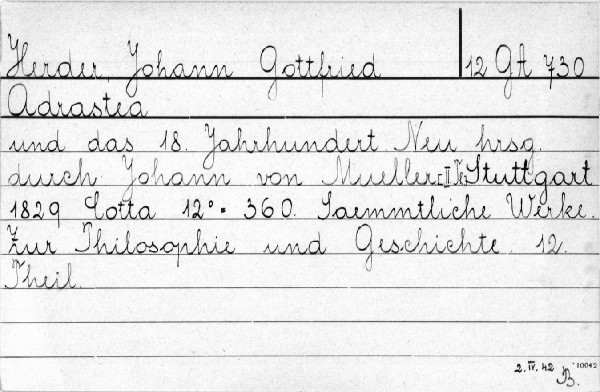 Herder, Johann Gottfried 12 Gt 730
Adrastea
und das 18. Jahrhundert. Neu hrsg.
durch Johann von Mueller. II Th. Stuttgart
1829 Cotta 12° 360. Saemmtliche Werke.
Zur Philosophie und Geschichte. 12.
Theil.
2. IV. 42 B. 10042